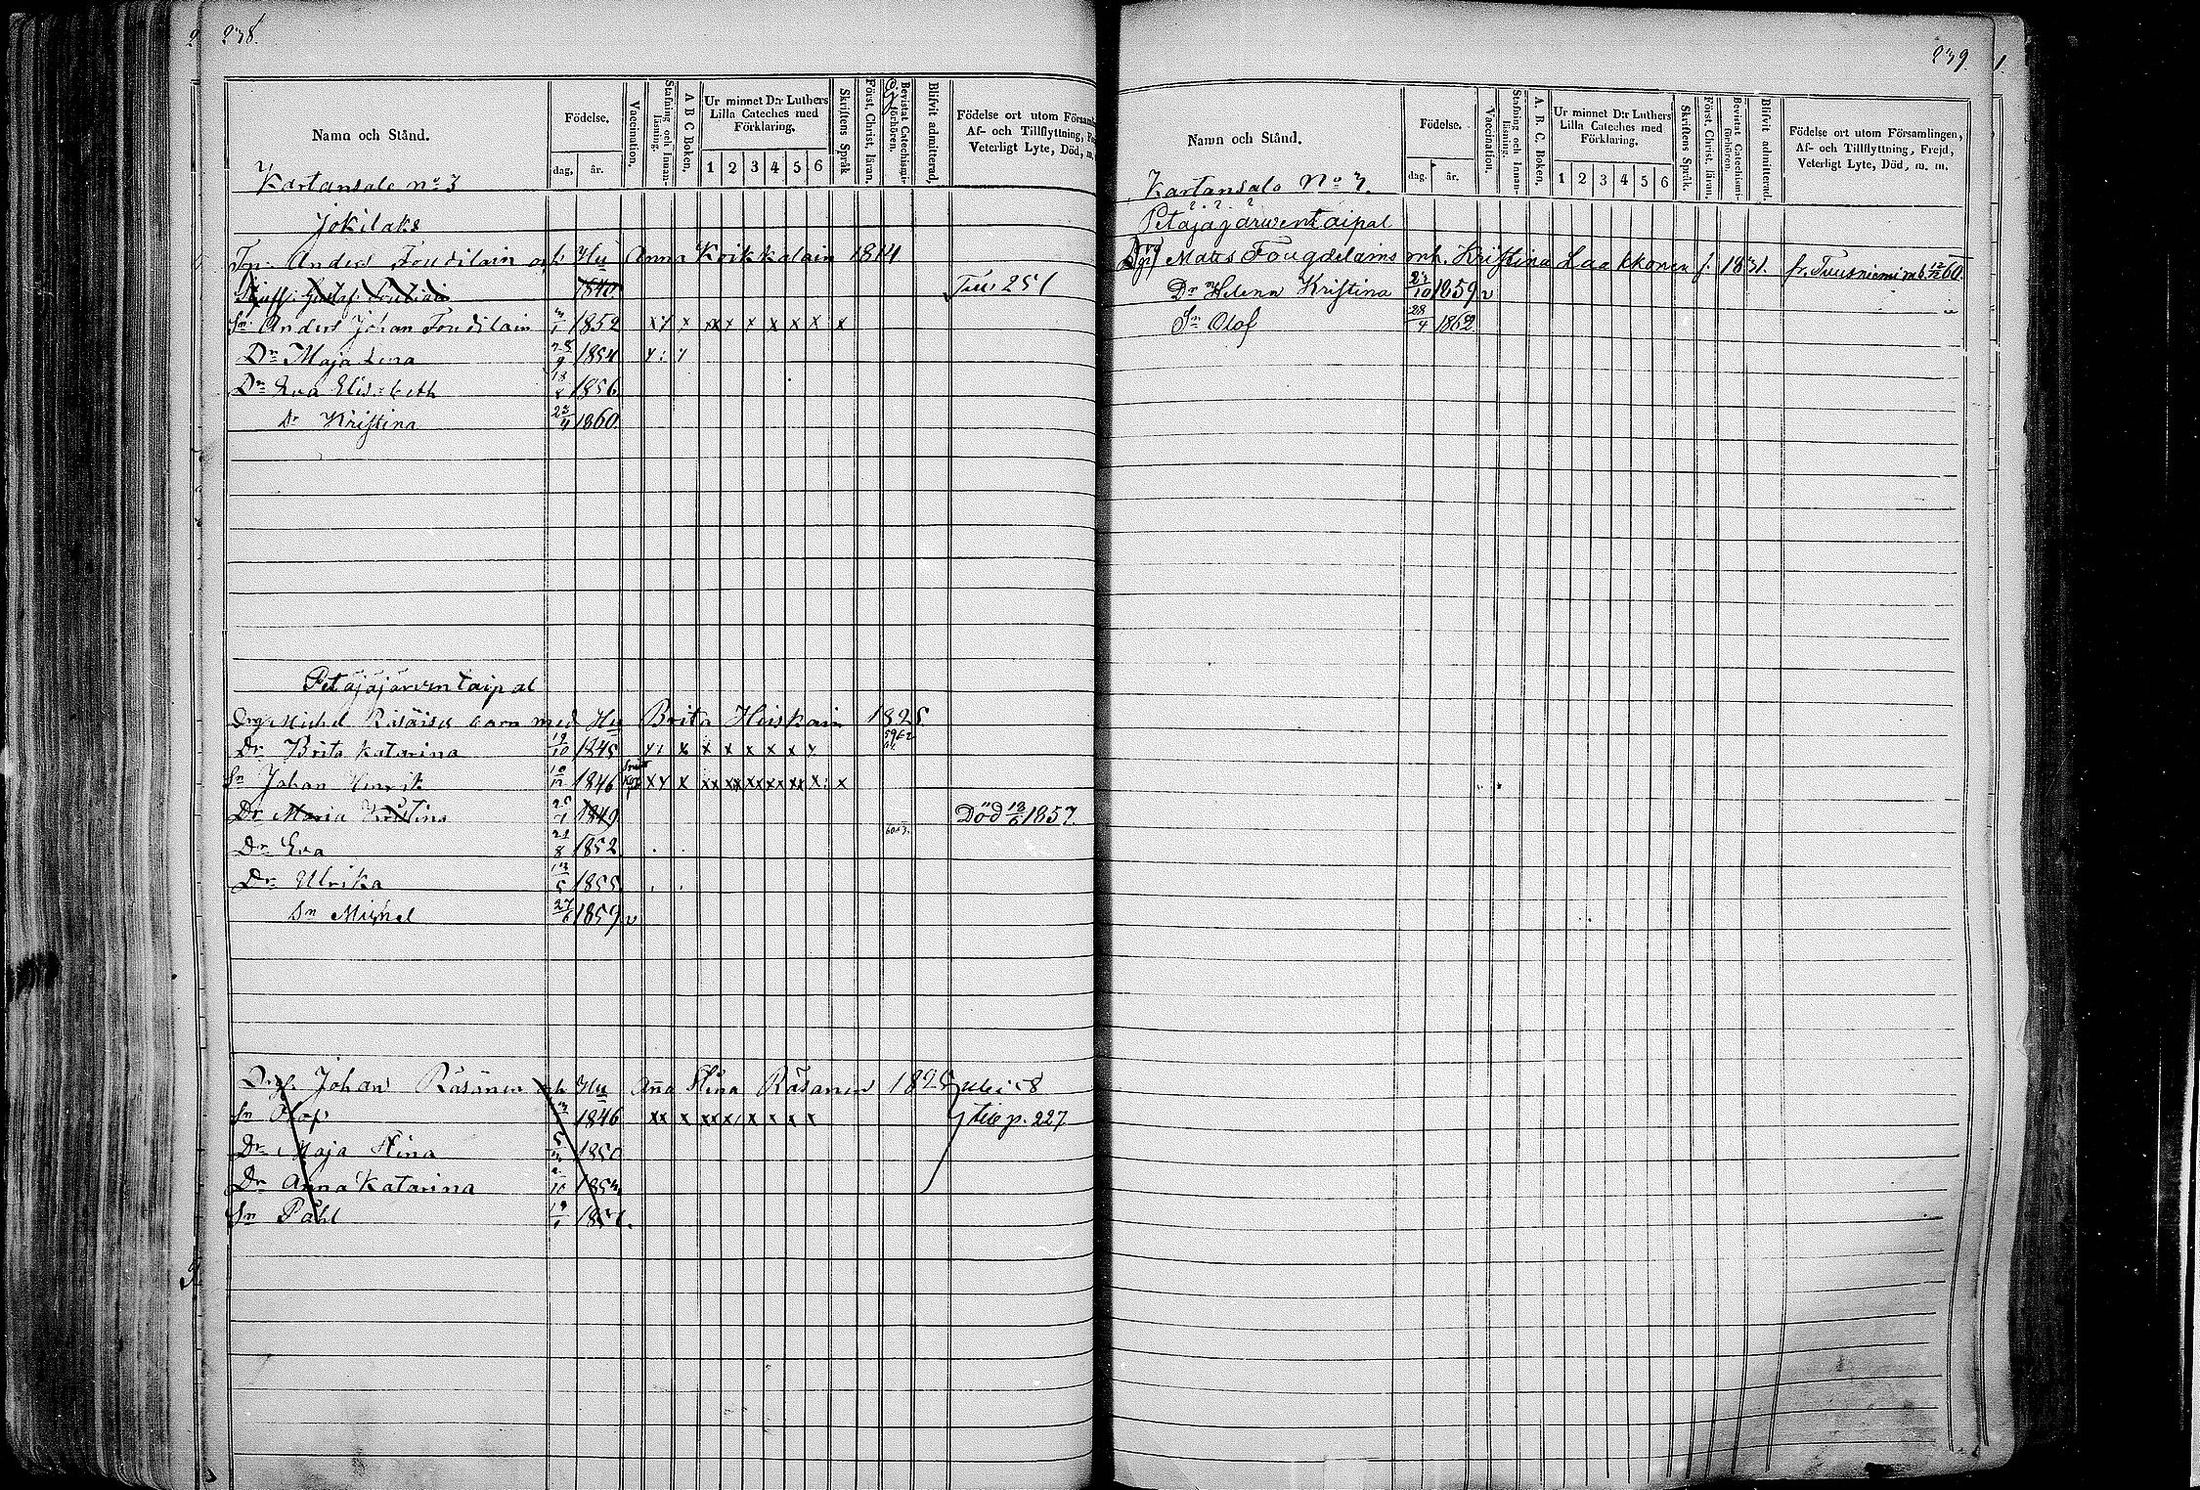 238.
Namn och Stånd.
Födelse.
dag, år.
Vaccination.
Stafning och Innanläsning.
A B C Boken.
Ur minnet D:r Luthers Lilla Cateches med Förklaring.
1 2 3 4 5 6
Skriftens Språk
Först. Christ. läran.
Bevistat Catechismiförhören.
Blifvit admitterad.
Födelse ort utom Försam
Af- och Tillflyttning,
Veterligt Lyte, Död, m.
Kartansalo no 3
Jokilaks
Anders Foudilain och Hu Anna Koikkalain 1814
Gustaf 1840 251
Sn Anders Johan Foudilain 1852 x x x x x x x x x x
Dr Maja Lena 1854
Dr Eva Elisabeth 1856
Dr Kristina 23/4 1860
Petäjäjärventaipal
Michel Räsäises barn med Hu Brita Heiskain
Dr Brita Katarina 19/10 1845 x x x x x x
Sn Johan Henrik 1846 x x x xx xx xx xx xx x x
Dr Maria 1849 Död 1857
Dr Eva 21/8 1852
Dr Ulrika 1855
Sn Michel 27/6 1859 v
Johan Räsänen och Hu Anna Stina Räsänen
Sn Olof 1846 xx x xxx x x x x p. 227
Dr Maja Stina 1850
Dr Anna Katarina
Sn Påhl
239.
Namn och Stånd.
Födelse.
dag. år.
Vaccination.
Stafning och Innanläsning.
A. B. C. Boken.
Ur minnet D:r Luthers Lilla Cateches med Förklaring.
1 2 3 4 5 6
Skriftens Språk.
Först. Christ. läran.
Bevistat Catechismiförhören.
Blifvit admitterad.
Födelse ort utom Församlingen,
Af- och Tillflyttning, Frejd,
Veterligt Lyte, Död, m. m.
Kartansalo No 3.
Petäjäjärwentaipal
Matts Fougdelains mh. Kristina Laakkonen f. 1831. fr. Tuusniemi 60.
Dr Helena Kristina 1859 v
Sn Olof 28/4 1862